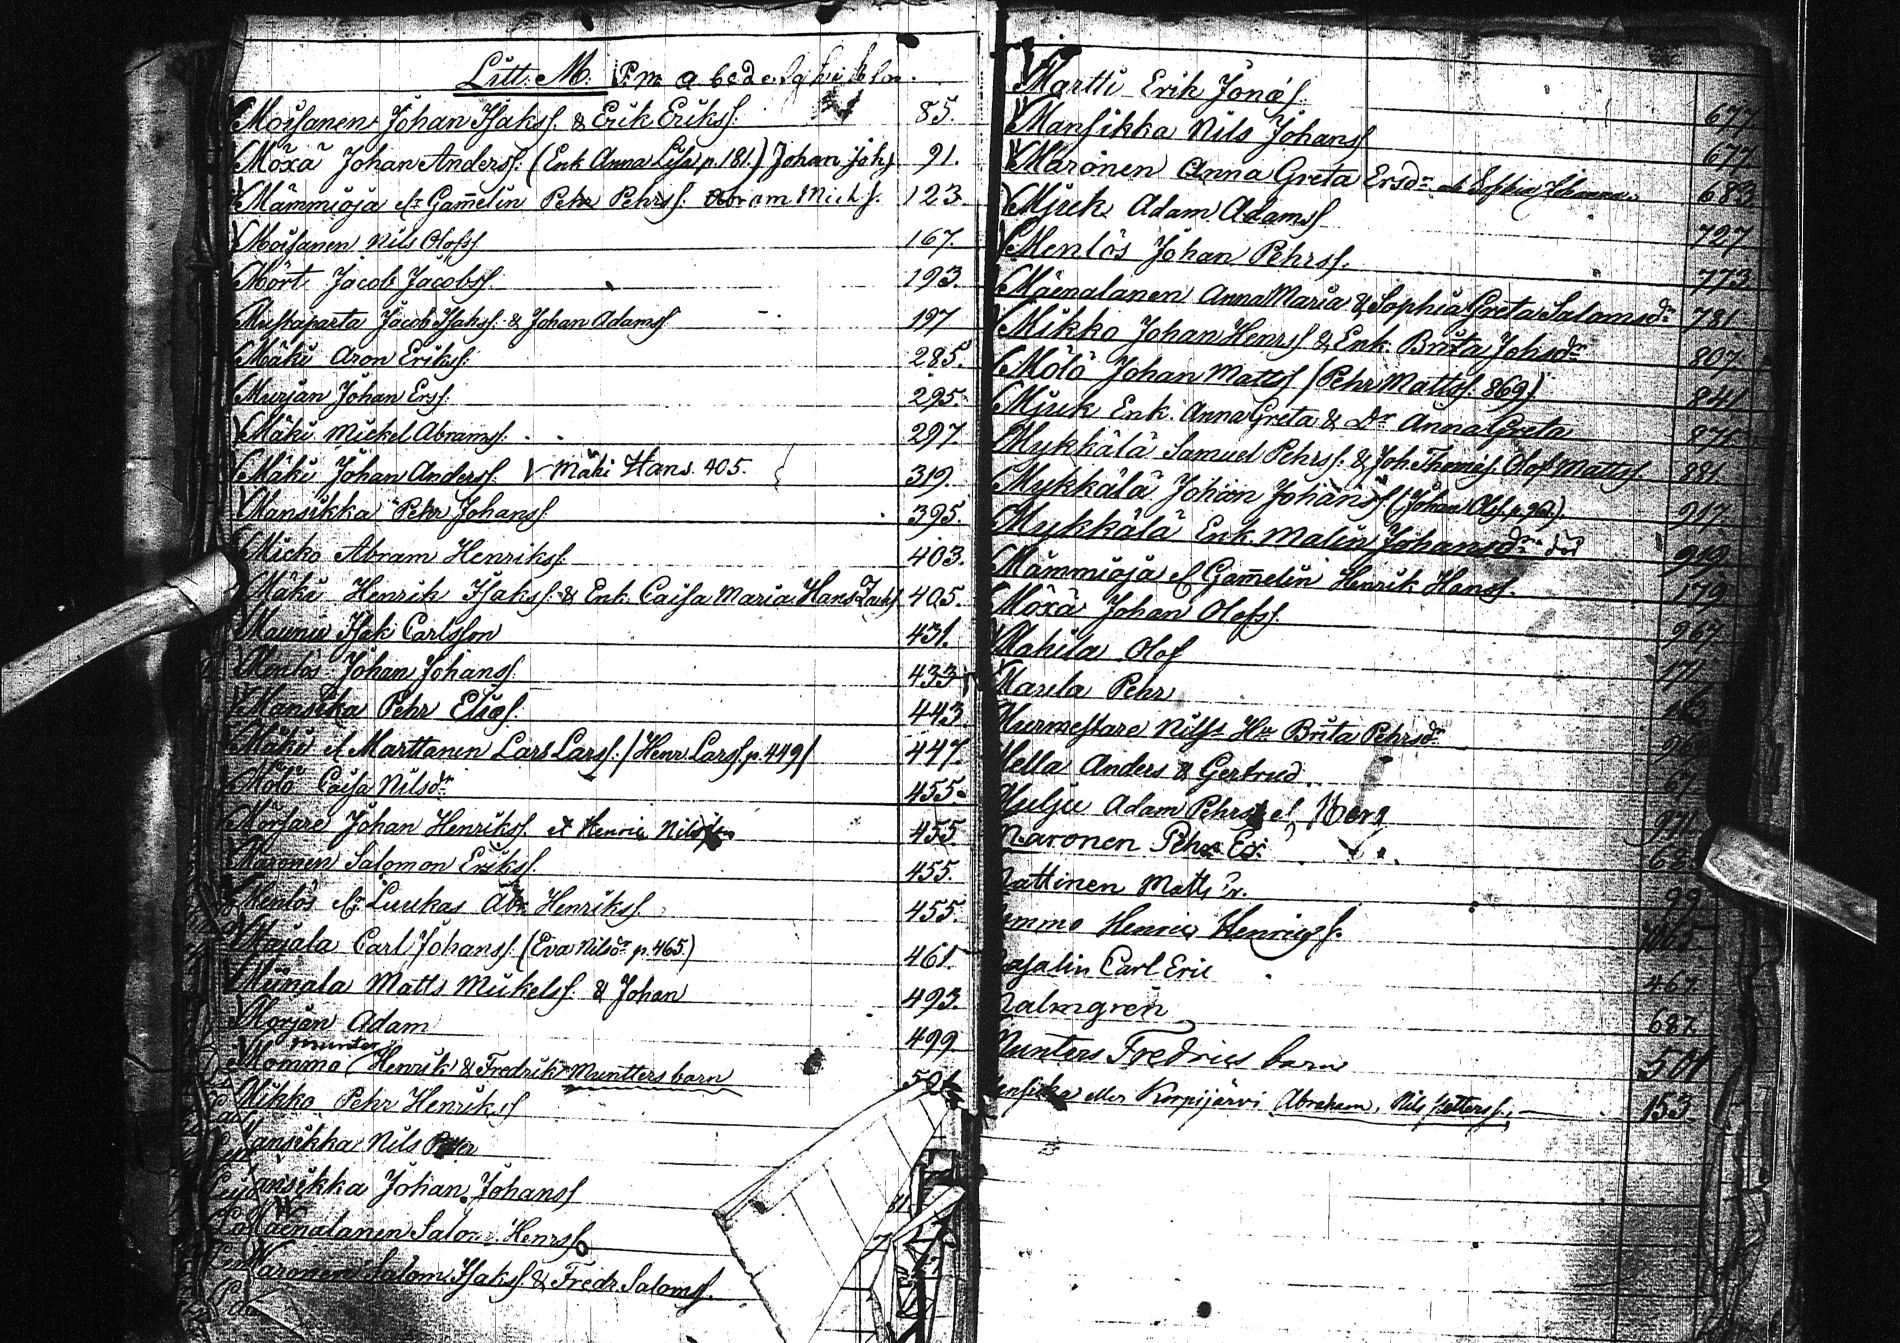 Litt. M. P.m. a b c d e f g h i k l m.
Moisanen Johan Isakss. & Erik Erikss. 85.
Möxä Johan Anderss. (Enk. Anna Lisa p. 181.) Johan Joh. 91.
Mämmioja el. Gam̅elin Pehr Pehrss. Abram Micks. 123
Moisanen Nils Olofss. 167.
Mört Jacob Jacobss. 193.
Mustaparta Jacob Isakss. & Johan Adamss. 197
Mäki Aron Erikss. 285.
Murjan Johan Erss. 295.
Mäki Mickel Abramss. 297
Mäki Johan Anderss. Mäki Hans 405. 319.
Mansikka Pehr Johanss. 395.
Micko Abram Henrikss. 403.
Mäki Henrik Isakss. & Enk. Caisa Maria. Hans 405.
Maunu Isak Carlsson 431.
Menlös Johan Johanss. 433
Mansika Pehr Eliæs. 443
Mäki el Marttanen Lars Larss. /Henr. Larss. p. 449/ 447.
Mölö Caisa Nilsdr. 455.
Mörsare Johan Henrikss. Henric Nilsson 455.
Maronen Salomon Erikss. 455.
Menlös el. Luukas Abr. Henrikss. 455.
Majala Carl Johanss. (Eva Nilsdr. p. 465.) 461.
Miinala Matts Mickelss. & Johan 493.
Morjan Adam 499
munter
Mommo (Henrik & Fredrik Muntters barn 501
Mikko Pehr Henrikss
ansikka Nils Petter
ansikka Johan Johanss
aenalanen Salom. Henrss
Maronen Salom. Isakss. & Fredr. Salomss.
Martti Erik Jonæs. 677
Mansikka Nils Johanss 677
Maronen Anna Greta Ersdr. Sophia Johanna 683
Mjuk Adam Adamss 727
Menlös Johan Pehrss. 773
Mäenalanen Anna Maria & Sophia Greta Salomsdr. 781
Mikko Johan Henrss & Enk. Brita Johsdr 807.
Mölö Johan Mattss (Pehr Mattss. 869) 841
Mjuk Enk. Anna Greta & Dr Anna Greta 875
Mykkälä Samuel Pehrss. & Joh. Thomæs. Olof Mattss. 881
Mykkälä Johan Johanss (Johan Olss. p.) 917
Mykkälä Enk. Malin Johansdr. död 919
Mämmioja el Gam̅elin Henrik Hanss. 179
Möxä Johan Olofss. 967
Mahila Olof 171
Marila Pehr
Murmestare Nilss. Hu. Brita Pehrsdr.
Mella Anders & Gertrud 67
Mulju Adam Pehrss el. Berg 971
Maronen Pehr Er. 68
Mattinen Matts
emmo Henric Henricss.
ajalin Carl Eric 467.
Malmgren 687.
Munters Fredrics barn 501
ansikka eller Korpijärvi Abraham, Nils Petterss., 153.